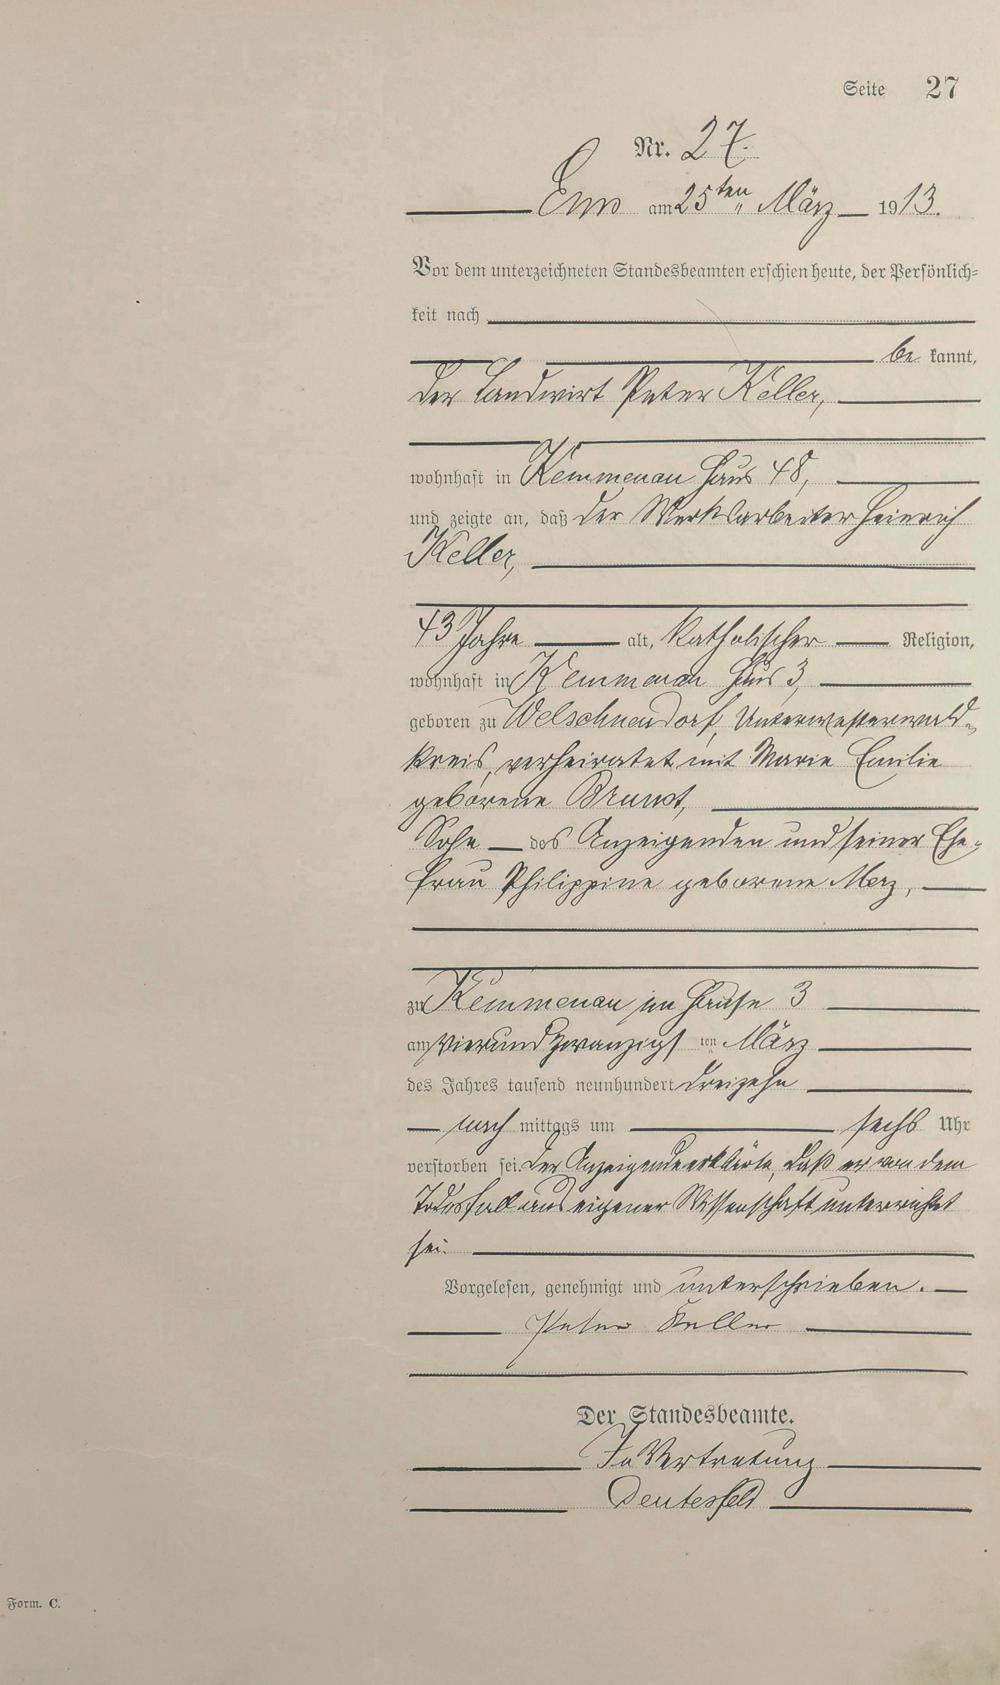 Seite 27
Nr. 27.
Ems am 25ten März 1913.
Vor dem unterzeichneten Standesbeamten erschien heute, der Persönlich=
keit nach
be kannt,
der Landwirt Peter Keller,
wohnhaft in Kemmenau Haus 48,
und zeigte an, daß der Werksarbeiter Heinrich
Keller,
43 Jahre alt, katholischer Religion,
wohnhaft in Kemmenau Haus 3,
geboren zu Welschneudorf, Unterwesterwald-
kreis, verheiratet mit Marie Emilie
geborene Brunst,
Sohn des Anzeigenden und seiner Ehe-
frau Philippine geborene Merz,
zu Kemmenau im Hause 3
am vierundzwanzigsten März
des Jahres tausend neunhundert dreizehn
nach mittags um sechs Uhr
verstorben sei. Der Anzeigende erklärte, daß er von dem
Todesfall aus eigener Wissenschaft unterrichtet
sei.
Vorgelesen, genehmigt und unterschrieben.
Peter Keller
Der Standesbeamte.
In Vertretung
Deutesfeld
Form. C.